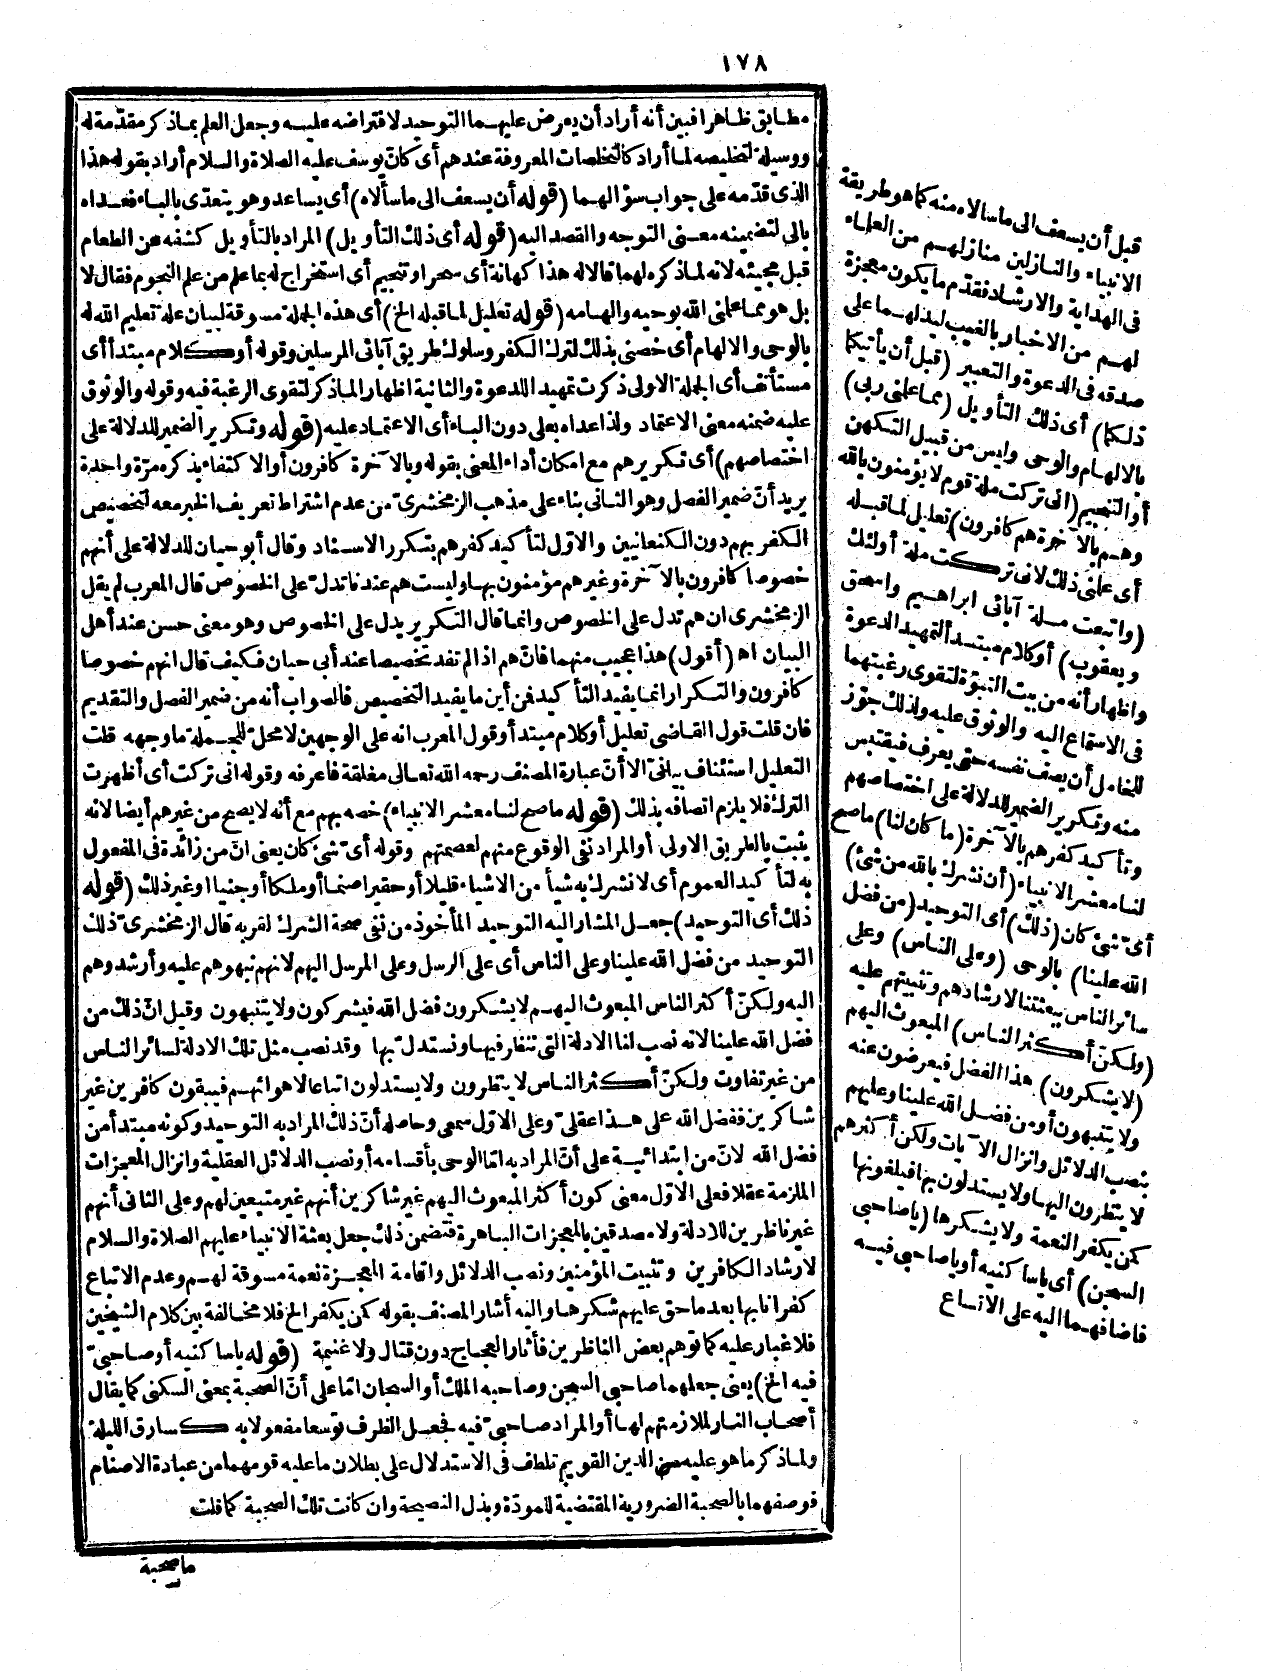 ١٧٨
مطابق ظاهرا فبين أنه أراد أن يعرض عليهما التوحيد لافتراضه عليه وجعل العلم بماذكر مقدّمة له
ووسيلة لتخليصه لما أراد كالتخلصات المعروفة عندهم أى كان يوسف عليه الصلاة والسلام أراد بقوله هذا
الذى قدّمه على جواب سؤالهما (قوله أن يسعف الى ما سألاه) أى يساعد وهو يتعدّى بالباء فعداه
بالى لتضمينه معنى التوجه والقصد اليه (قوله أى ذلك التأويل) المراد بالتأويل كشفه عن الطعام
قبل مجيئه لانه لماذكره لهما قالا له هذا كهانة أى سحر اوتنجيم أى استخراج له بما علم من علم النجوم فقال لا
بل هو مما علمنى الله بوحيه والهامه (قوله تعليل لما قبله الخ) أى هذه الجملة مسوقة لبيان علة تعليم الله له
بالوحى والالهام أى خصنى بذلك لترك الكفر وسلوك طريق آبائى المرسلين وقوله أو كلام مبتدأ أى
مستأنف أى الجملة الاولى ذكرت تمهيد اللدعوة والثانية اظهار المذكر لتقوى الرغبة فيه وقوله والوثوق
عليه ضمنه معنى الاعتماد ولذا عداه بعلى دون الباء أى الاعتماد عليه (قوله وتكرير الضمير للدلالة على
اختصاصهم) أى تكريرهم مع امكان أداء المعنى بقوله وبالآخرة كافرون أو الاكتفاء بذكره مرّة واحدة
يريد أنّ ضمير الفصل وهو الثانى بناء على مذهب الزمخشرىّ من عدم اشتراط تعريف الخبر معه لتخصيص
الكفر بهم دون الكنعانيين والاوّل لتأكيد كفرهم بتكرر الاسناد وقال أبو حيان للدلالة على أنهم
خصوصا كافرون بالآخرة وغيرهم مؤمنون بها وليست هم عندنا تدلّ على الخصوص قال المعرب لم يقل
الزمخشرى ان هم تدل على الخصوص وانما قال التكرير يدل على الخصوص وهو معنى حسن عند أهل
البيان اه (أقول) هذا عجيب منهما فانّ هم اذا لم تفد تخصيصا عند أبى حيان فكيف قال انهم خصوصا
كافرون والتكرار انما يفيد التأكيد فمن أين ما يفيد التخصيص فالصواب أنه من ضمير الفصل والتقديم
فان قلت قول القاضى تعليل أو كلام مبتدأ وقول المعرب انه على الوجهين لا محلّ للجملة ما وجهه قلت
التعليل استئناف بيانىّ الا أنّ عبارة المصنف رحمه الله تعالى مغلقة فاعرفه وقوله انى تركت أى أظهرت
الترك فلا يلزم اتصافه بذلك (قوله ما صح لنا معشر الانبياء) خصه بهم مع أنه لا يصح من غيرهم أيضا لانه
يثبت بالطريق الاولى أو المراد نفى الوقوع منهم لعصمتهم وقوله أىّ شئ كان يعنى انّ من زائدة فى المفعول
به لتأكيد العموم أى لا نشرك به شيأ من الاشياء قليلا أو حقيرا صنما أو ملكا أو جنيا اوغير ذلك (قوله
ذلك أى التوحيد) جعل المشار اليه التوحيد المأخوذ من نفى صحة الشرك لقربه قال الزمخشرىّ ذلك
التوحيد من فضل الله علينا وعلى الناس أى على الرسل وعلى المرسل اليهم لانهم نبهوهم عليه وأرشدوهم
اليه ولكنّ أكثر الناس المبعوث اليهم لا يشكرون فضل الله فيشركون ولا يتنبهون وقيل انّ ذلك من
فضل الله علينا لانه نصب لنا الادلة التى تنظر فيها ونستدل بها وقد نصب مثل تلك الادلة لسائر الناس
من غير تفاوت ولكنّ أكثر الناس لا ينظرون ولا يستدلون اتباعا لاهوائهم فيبقون كافرين غير
شاكرين ففضل الله على هذا عقلىّ وعلى الاوّل سمعى وحاصله أنّ ذلك المراد به التوحيد وكونه مبتدأ من
فضل الله لانّ من ابتدائية على أنّ المراد به امّا الوحى بأقسامه أو نصب الدلائل العقلية وانزال المعجزات
الملزمة عقلا فعلى الاوّل معنى كون أكثر المبعوث اليهم غير شاكرين أنهم غير متبعين لهم وعلى الثانى أنهم
غير ناظرين للادلة ولا مصدقين بالمعجزات الباهرة فتضمن ذلك جعل بعثة الانبياء عليهم الصلاة والسلام
لارشاد الكافرين وتثبيت المؤمنين ونصب الدلائل واقامة المعجزة نعمة مسوقة لهم وعدم الاتباع
كفرانا بها بعد ما حق عليهم شكرها واليه أشار المصنف بقوله كمن يكفر الخ فلا مخالفة بين كلام الشيخين
فلا غبار عليه كما توهم بعض الناظرين فأثار العجاج دون قتال ولا غنيمة (قوله ياساكنيه أو صاحبىّ
فيه الخ) يعنى جعلهما صاحبى السجن وصاحبه الملك أو السجان امّا على أنّ الصحبة بمعنى السكنى كما يقال
أصحاب النار لملازمتهم لها أو المراد صاحبىّ فيه فجعل الظرف توسعا مفعولا به كسارق الليلة
ولماذكر ما هو عليه من الدين القويم تلطف فى الاستدلال على بطلان ما عليه قومهما من عبادة الاصنام
فوصفهما بالصحبة الضرورية المقتضية للمودّة وبذل النصيحة وان كانت تلك الصحبة كما قلت
ما صحبة
قبل أن يسعف الى ما سالاه منه كما هو طريقة
الانبياء والنازلين منازلهم من العلماء
فى الهداية والارشاد فقدّم ما يكون معجزة
لهم من الاخبار بالغيب ليدلهما على
صدقه فى الدعوة والتعبير (قبل أن يأتيكما
ذلكما) أى ذلك التأويل (مما علمنى ربى)
بالالهام والوحى وليس من قبيل التكهن
أو التنجيم (انى تركت ملة قوم لا يؤمنون بالله
وهم بالآخرة هم كافرون) تعليل لما قبله
أى علمنى ذلك لانى تركت ملة أولئك
(واتبعت ملة آبائى ابراهيم واسحق
ويعقوب) أو كلام مبتدأ لتمهيد الدعوة
واظهار أنه من بيت النبوّة لتقوى رغبتهما
فى الاستماع اليه والوثوق عليه ولذلك جوّز
للخامل أن يصف نفسه حتى يعرف فيقتبس
منه وتكرير الضمير للدلالة على اختصاصهم
وتأكيد كفرهم بالآخرة (ما كان لنا) ما صح
لنا معشر الانبياء (أن نشرك بالله من شئ)
أىّ شئ كان (ذلك) أى التوحيد (من فضل
الله علينا) بالوحى (وعلى الناس) وعلى
سائر الناس ببعثتنا لارشادهم وتثبيتهم عليه
(ولكنّ أكثر الناس) المبعوث اليهم
(لا يشكرون) هذا الفضل فيعرضون عنه
ولا يتنبهون أو من فضل الله علينا وعليهم
بنصب الدلائل وانزال الآيات ولكن أكثرهم
لا ينظرون اليها ولا يستدلون بها فيلغونها
كمن يكفر النعمة ولا يشكرها (ياصاحبى
السجن) أى ياساكنيه أو ياصاحبى فيه
فاضافهما اليه على الاتساع